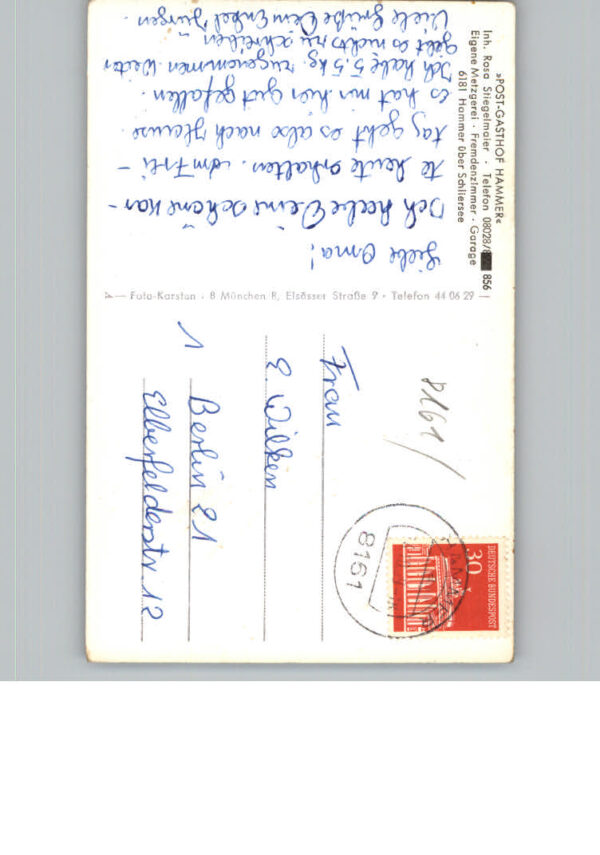 »POST-GASTHOF HAMMER«
Inh. Rosa Stiegelmaier · Telefon 08028/ 856
Eigene Metzgerei · Fremdenzimmer · Garage
6181 Hammer über Schliersee
Liebe Oma!
Ich habe Deine schöne Kar-
te heute erhalten. Am Frei-
tag geht es also nach Hause.
Es hat mir hier gut gefallen.
Ich habe 5,5 kg zugenommen. Weiter
gibt es nichts zu schreiben
Viele Grüße Dein Enkel Jürgen.
Foto-Karstun · 8 München 8, Elsässer Straße 9 · Telefon 44 06 29
8161/
DEUTSCHE BUNDESPOST
30
HAMMER
8161
Frau
E. Wilken
1 Berlin 21
Elberfelderstr 12